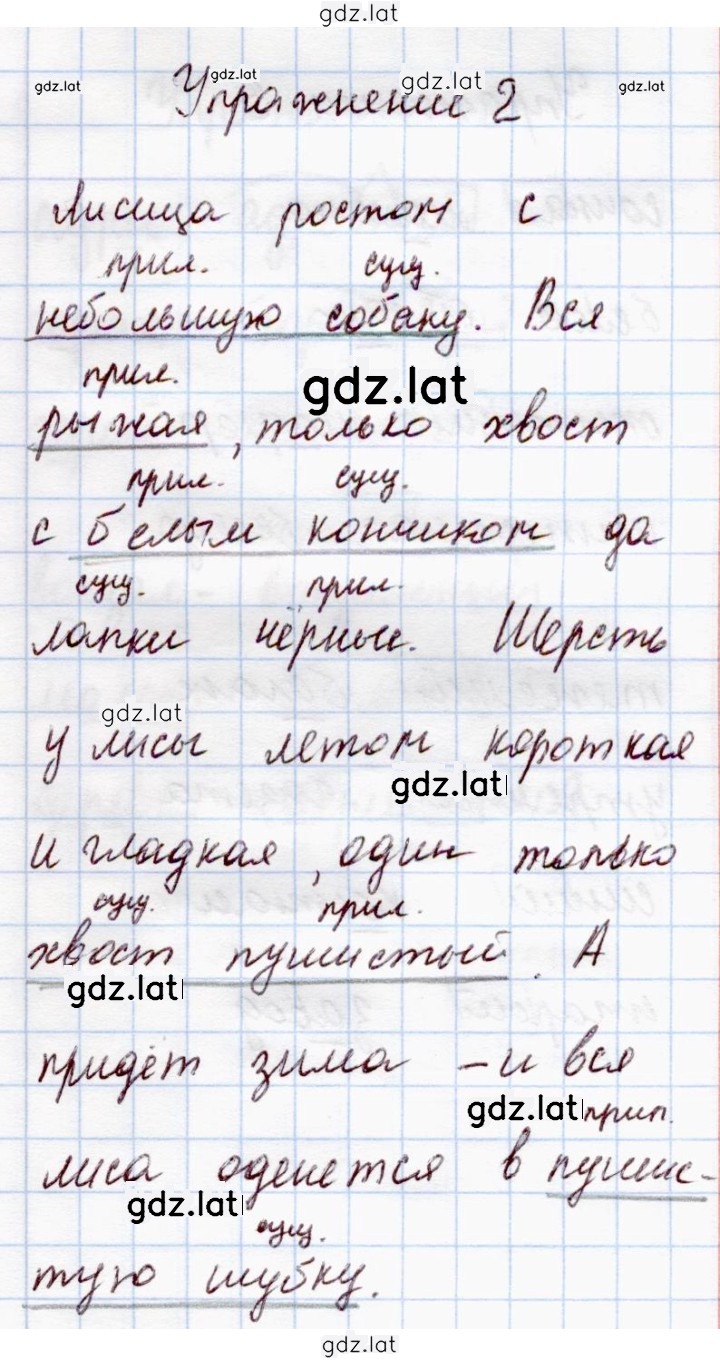 gdz.lat
gdz.lat gdz.lat gdz.lat gdz.lat
Упражнение 2
Лисица ростом с
прил. сущ.
небольшую собаку. Вся
прил.
gdz.lat
рыжая, только хвост
прил. сущ.
с белым кончиком да
сущ. прил.
лапки чёрные. Шерсть
gdz.lat
у лисы летом короткая
gdz.lat
и гладкая, один только
сущ. прил.
хвост пушистый. А
gdz.lat
придёт зима – и вся
gdz.lat прил.
лиса оденется в пушис-
gdz.lat
сущ.
тую шубку.
gdz.lat